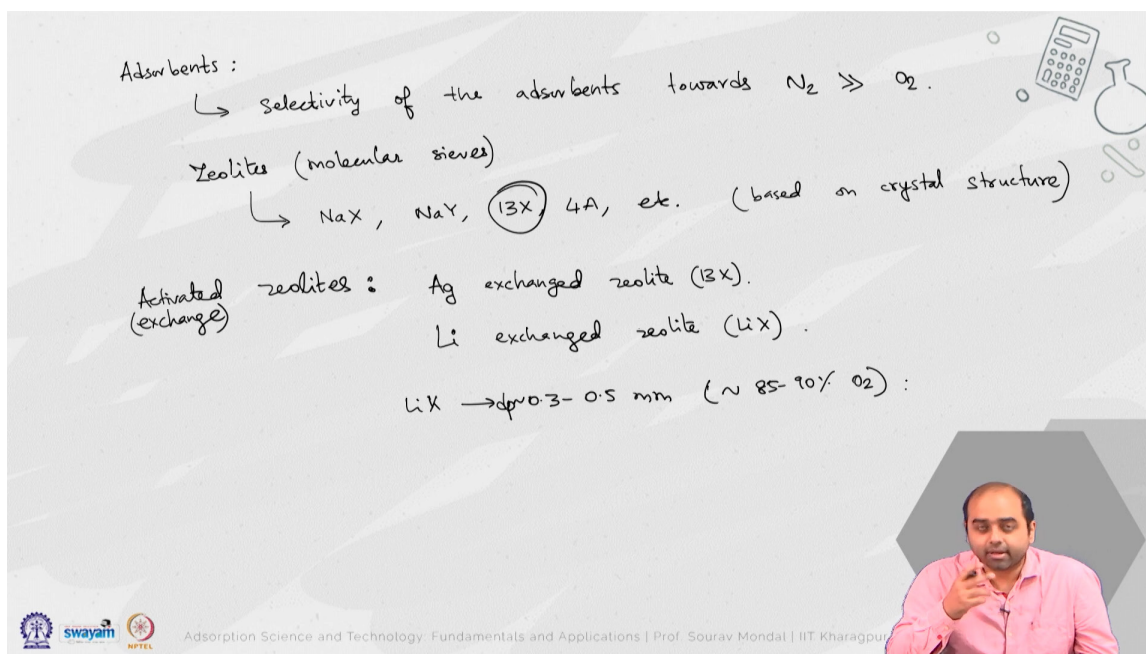 Adsorbents :
↳ Selectivity of the adsorbents towards N2 >> O2.
Zeolites (molecular sieves)
↳ NaX, NaY, 13X, 4A, etc. (based on crystal structure)
Activated zeolites : Ag exchanged zeolite (13X).
(exchange)
Li exchanged zeolite (LiX).
LiX → dp~0.3-0.5 mm (~ 85-90% O2) :
swayam
NPTEL
Adsorption Science and Technology: Fundamentals and Applications | Prof. Sourav Mondal | IIT Kharagpur